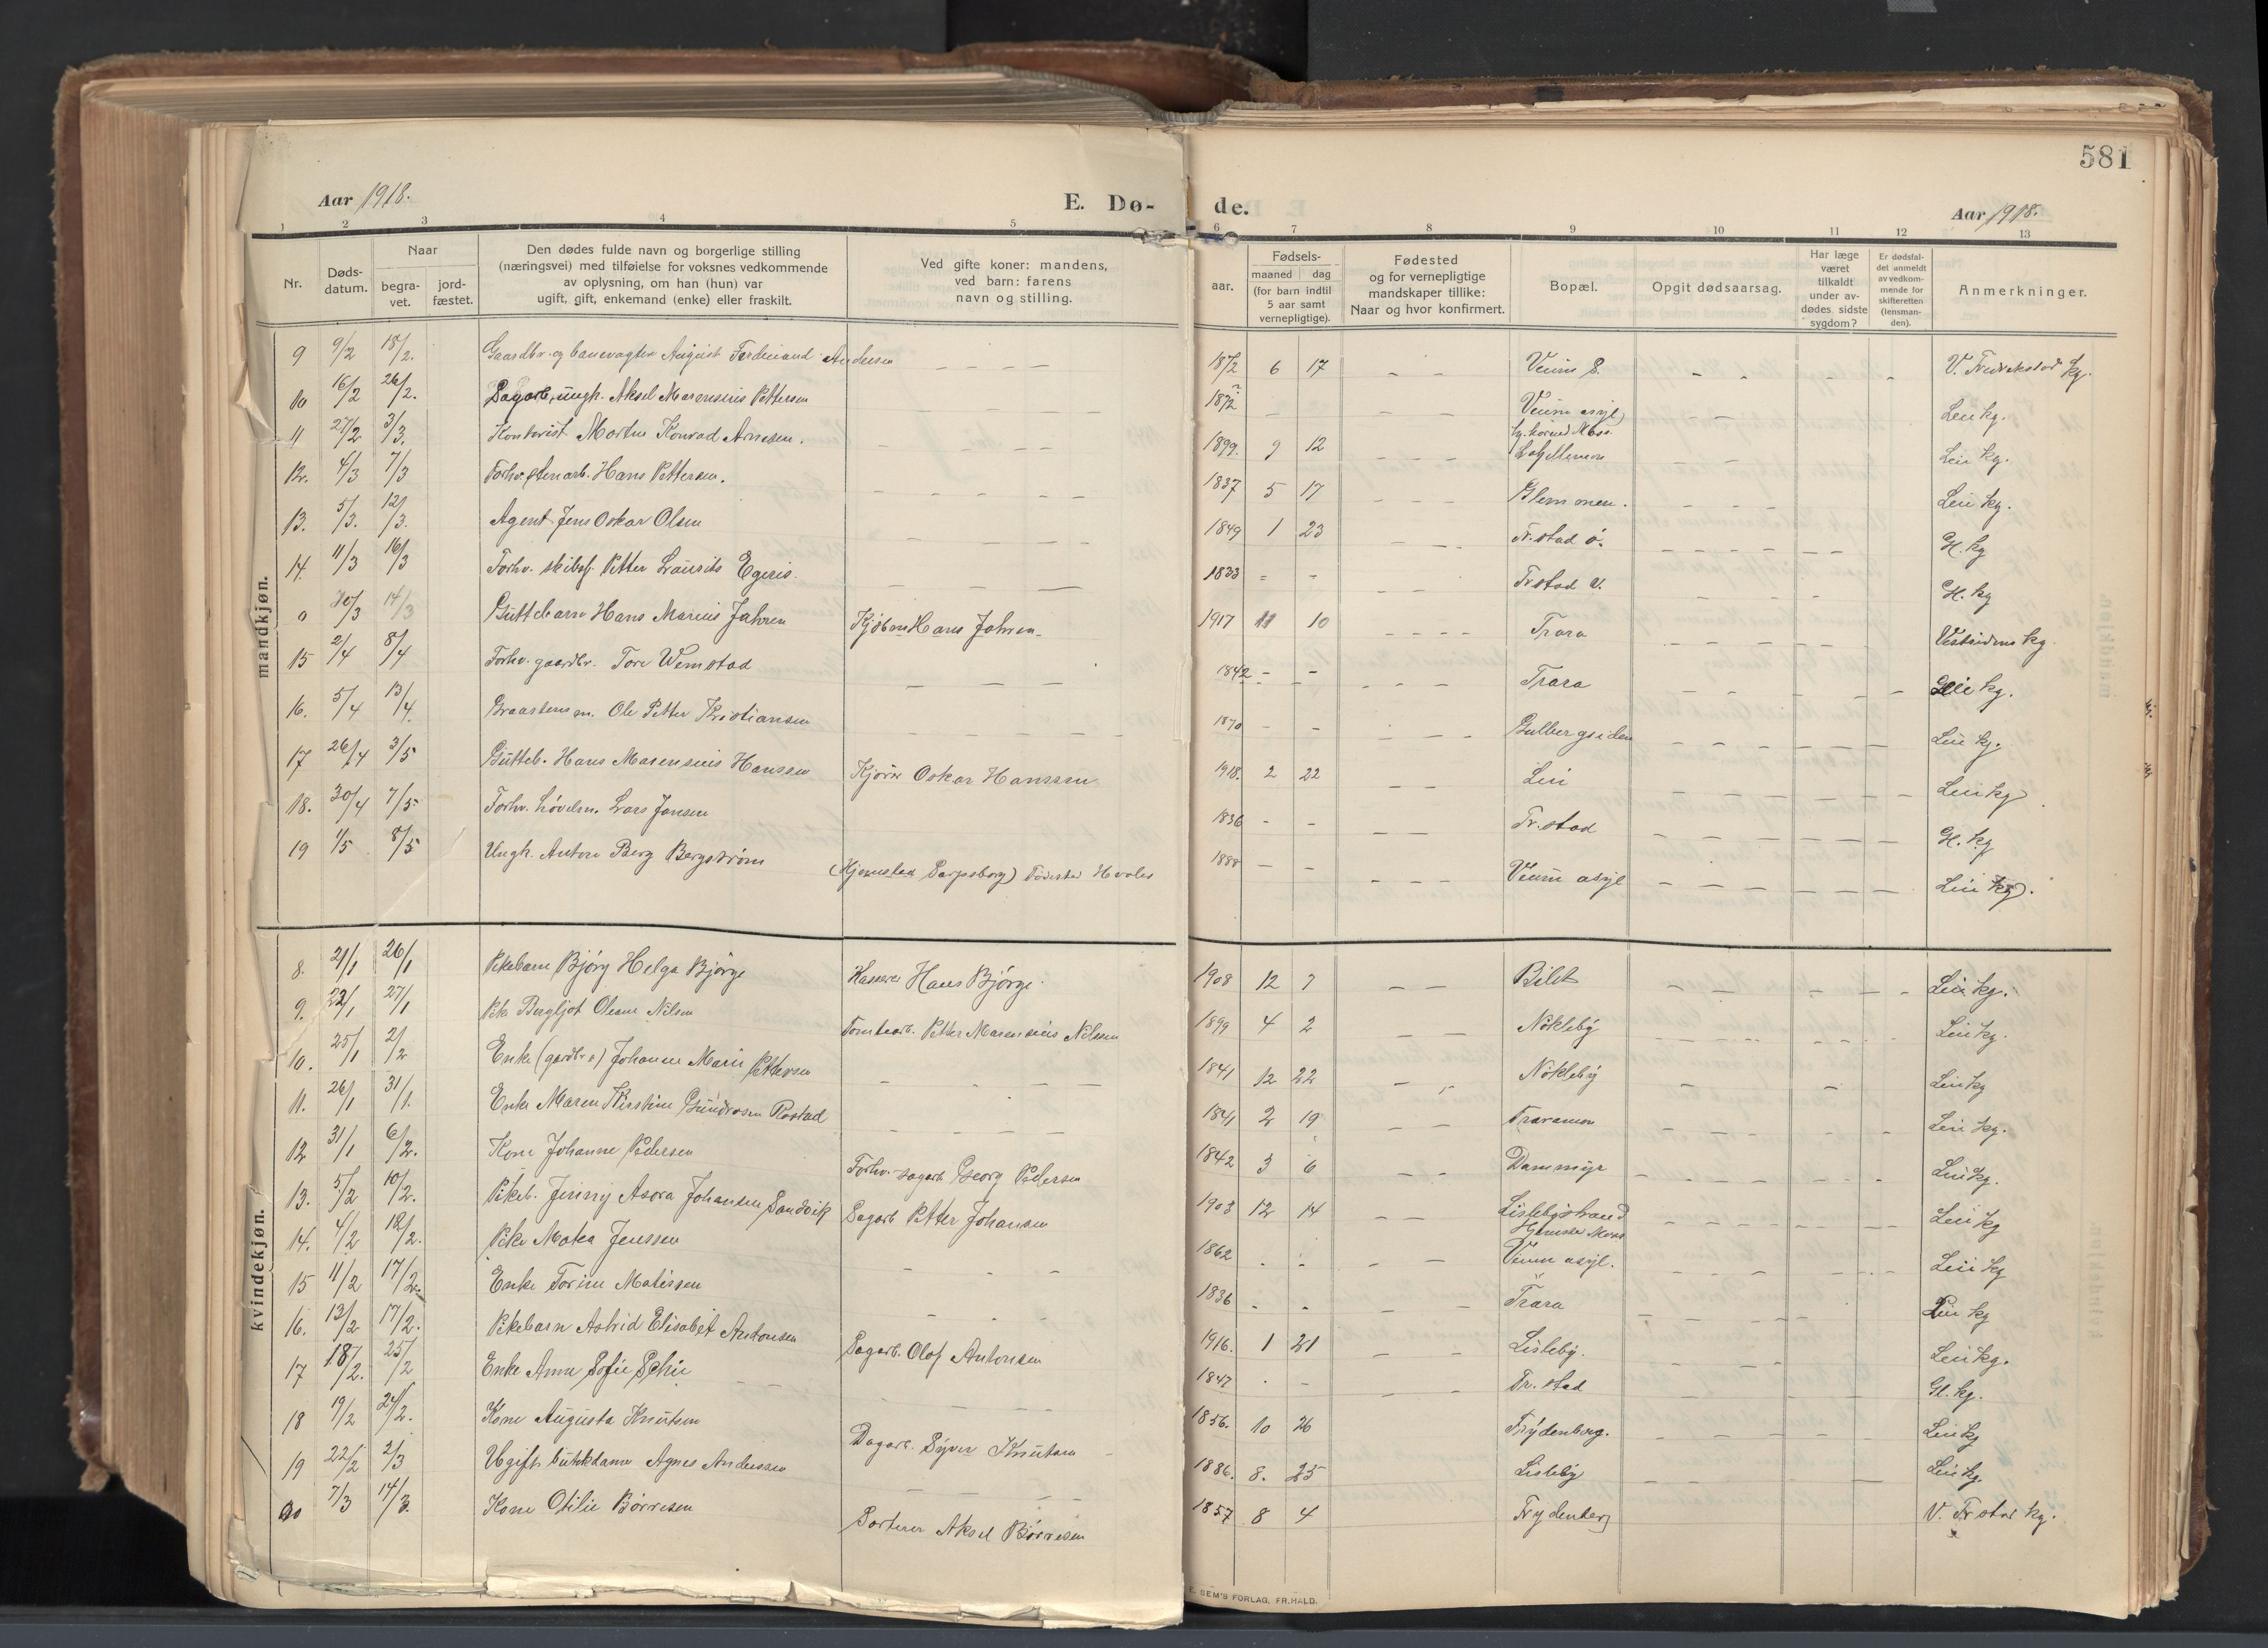 581
Aar 1918. E. Dø- de. Aar 1918.
1 2 3 4 5 6 7 8 9 10 11 12 13
Nr.
Døds-
datum.
Naar
begra-
vet.
jord-
fæstet.
Den dødes fulde navn og borgerlige stilling
(næringsvei) med tilføielse for voksnes vedkommende
av oplysning, om han (hun) var
ugift, gift, enkemand (enke) eller fraskilt.
Ved gifte koner: mandens,
ved barn: farens
navn og stilling.
Fødsels-
aar.
maaned dag
(for barn indtil
5 aar samt
vernepligtige).
Fødested
og for vernepligtige
mandskaper tillike:
Naar og hvor konfirmert.
Bopæl.
Opgit dødsaarsag.
Har læge
været
tilkaldt
under av-
dødes sidste
sygdom?
Er dødsfal-
det anmeldt
av vedkom-
mende for
skifteretten
(lensman-
den).
Anmerkninger.
mandkjøn.
9 9/2 18/2. Gaardbr. og banevagter August Ferdinand Andersen - - - - 1872 6 17 - - Veum S. - - - V. Fredrikstad kg.
10 16/2 26/2. Dagarb, ungk. Aksel Marensius Pettersen - - - - 1872 - - - - Veum asyl - - Leie kg.
11 27/2 3/3. Kontorist Morten Konrad Arnesen. - - - 1899. 9 12 - - - Leie kg.
12. 4/3 7/3 Forhv. stenarb. Hans Pettersen. - - - - - - 1837 5 17 - - - Glemmen. - - - Leie kg.
13. 5/3. 12/3. Agent Jens Oskar Olsen - - - - - 1849 1 23 - - - Fr.stad ø. - - - - - - Gl. kg
14. 11/3 16/3 Forhv. skibsf. Petter Laurits Egeris. - - - 1833 - - - - Frstad V. - - - Gl. kg
0 10/3 14/3 Guttebarn Hans Marius Jahren Kjøbm Hans Jahren - 1917 11 10 - - - - Trara - - - Vestsidens kg.
15 2/4 8/4 Forhv. gaardbr. Tore Wemstad - - - 1842 - - - - - Trara - - - - - kg.
16. 5/4 13/4. Graastensm. Ole Petter Kristiansen - - - - - - 1870 - - - - - Gulbergsiden - - - - - - Leie kg.
17 26/4 3/5 Gutteb. Hans Marensius Hanssen Kjører Oskar Hanssen 1918. 2 22 - - Leie - - - - - - Leie kg
18. 30/4 7/5 Forhv. høvelm. Lars Jansen 1836 - - - - Fr.stad - - - - - - Gl. kg
19 1/5 8/5 Ungk. Anton Berg Bergstrøm (Hjemstad Sarpsborg) Fødested Hvaler 1888 - - - - - Veum asyl - - - - - - Leie kg.
kvindekjøn.
8. 21/1 26/1 Pikebarn Bjørg Helga Bjørge Kasserer Hans Bjørge. 1908 12 7 - - Bilet - - - - - Leie kg.
9. 22/1 27/1 Pike Bergljot Oleane Nilsen Tomtearb. Petter Marensius Nilssen 1899 4 2 - - Nøkleby - - - - - Leie kg.
10. 25/1 2/2 Enke (gardbr.e) Johanne Marie Pettersen - - - 1841 12 22 - - Nøkleby - - Leie kg
11. 26/1 31/1. Enke Maren Kirstine Gundrosen Rostad - - - - - 1841 2 19 - - Traramen - - - - - - Leie kg.
12 31/1 6/2. Kone Johanne Pedersen Forhv. sagarb Georg Pedersen 1842 3 6 - - Dammyr - - - - - - Leie kg.
13. 5/2 10/2. Pikeb. Jenny Asora Johansen Sandvik Sagarb Petter Johansen 1903 12 14 - - Lislebystrand - - - - - - Leie kg
14. 4/2 12/2. Pike Matea Jenssen - - - 1862 - - - - Hjemsted Moss
Veum asyl. - - - - - - Leie kg
15 11/2 17/2. Enke Torine Matissen - - - 1836 - - - - Trara - - - - - Leie kg
16. 13/2 17/2. Pikebarn Astrid Elisabet Antonsen Sagarb. Olof Antonsen 1916. 1 21 - - Lisleby. - - Leie kg.
17 18/2. 25/2 Enke Anna Sofie Schie - - - - - 1847 - - - - Fr. stad - - - Gl. kg.
18 19/2 24/2. Kone Augusta Knutsen Dagarb. Syver Knutsen - 1856. 10 26 Frydenberg. - - - - - - Leie kg
19 22/2 2/3 Ugift butikdame Agnes Andersen - - - - 1886. 8. 25 Lisleby - - - - - - Leie kg
20 7/3 14/3. Kone Otilie Børresen Sorterer Aksel Børresen 1857 8 4 Frydenberg V. Frstad kg.
E. SEM'S FORLAG, FR.HALD.